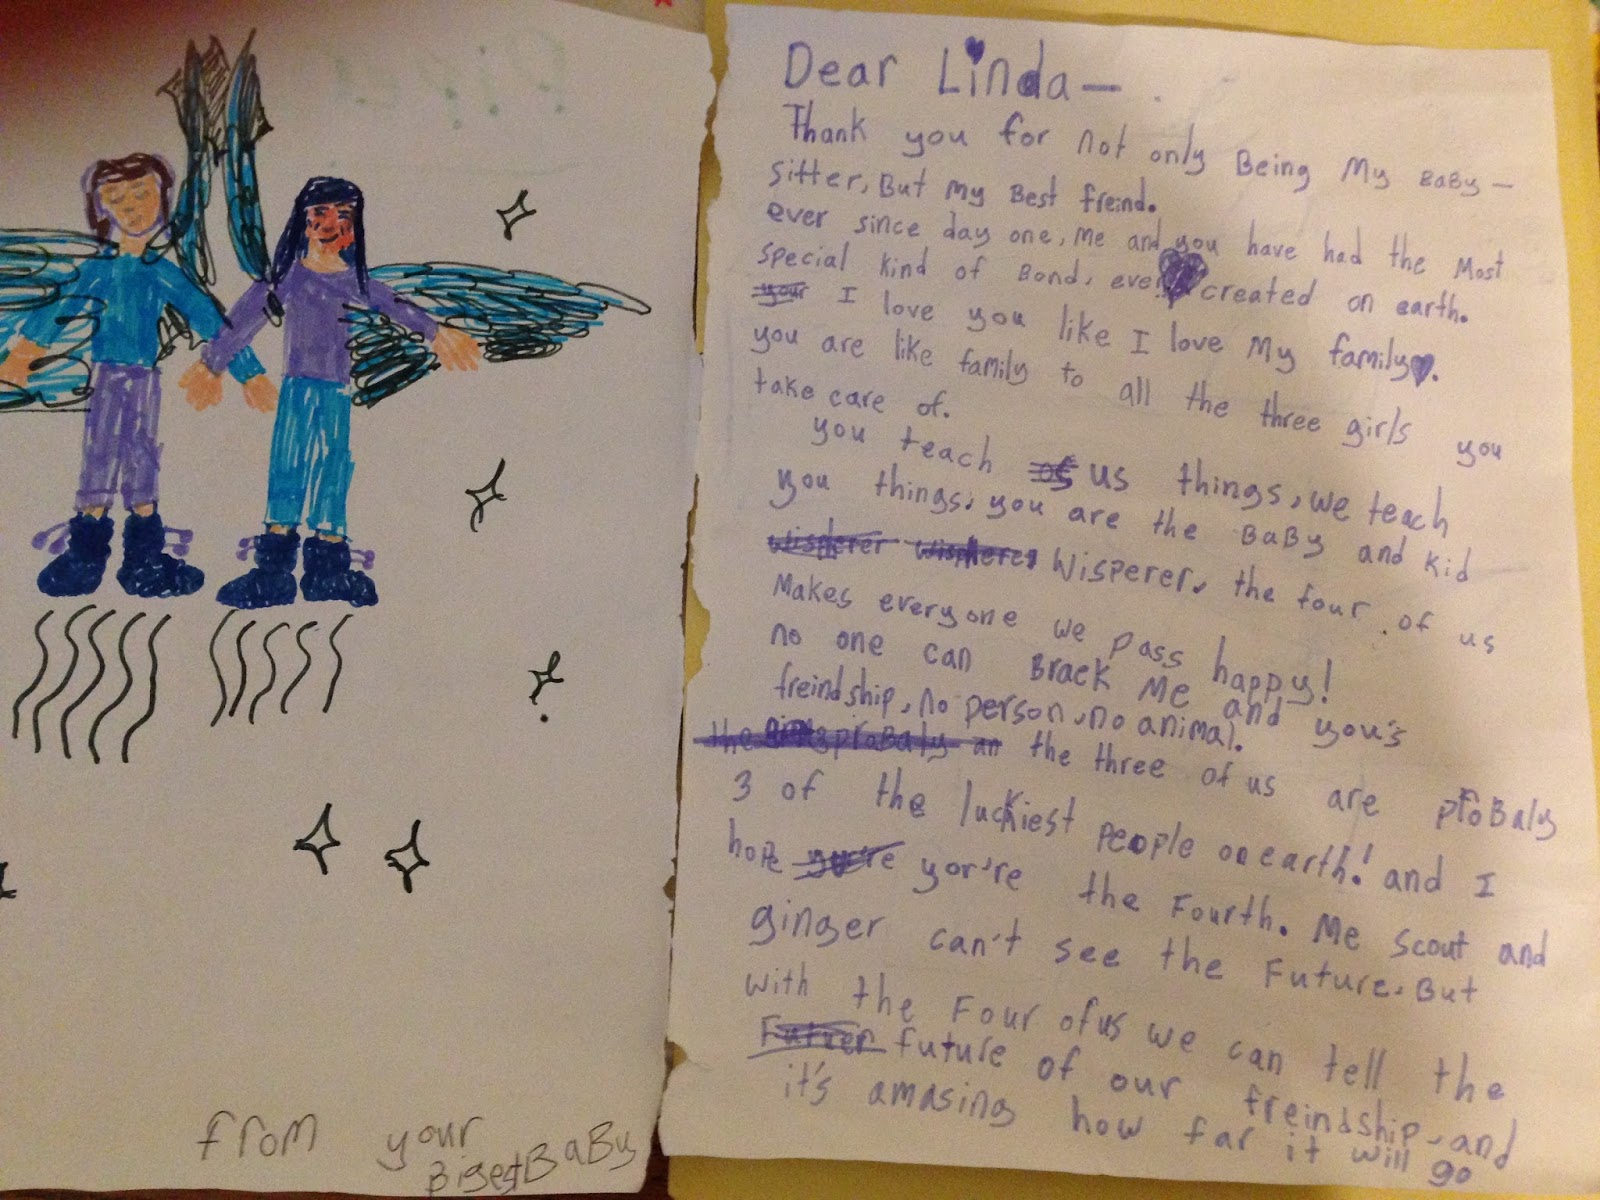 Dear Linda—
Thank you for not only Being My BaBy—
sitter, But My Best freind.
ever since day one, Me and you have had the Most
special kind of Bond, ever created on earth.
your I love you like I love My family.
you are like family to all the three girls you
take care of.
you teach of us things, we teach
you things, you are the BaBy and kid
wisperer wispherer Wisperer, the four of us
Makes everyone we pass happy!
no one can Braek Me and you's
freindship, no person, no animal.
the proBaly an the three of us are proBaly
3 of the luckiest people on earth! and I
hope you're yor're the Fourth. Me scout and
ginger can't see the Future. But
with the Four of us we can tell the
Futuer future of our freindship, and
it's amasing how far it will go
from your
BigestBaBy